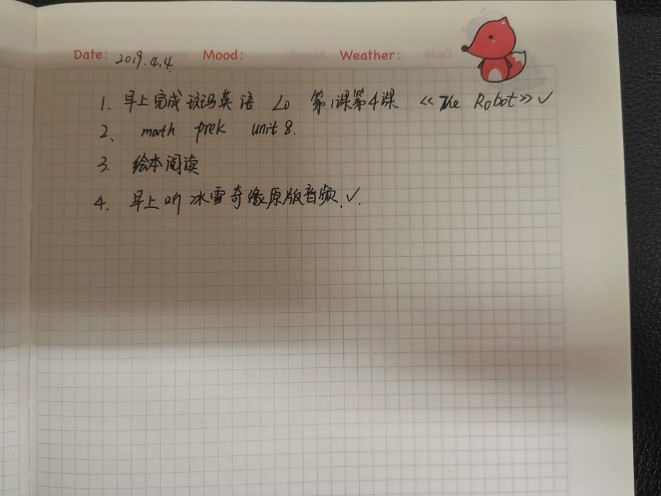 Date: 2019.9.4. Mood: Weather:
1. 早上完成斑马英语 L0 第1课第4课 《The Robot》✓
2. math prek unit 8.
3. 绘本阅读
4. 早上听冰雪奇缘原版音频.✓.